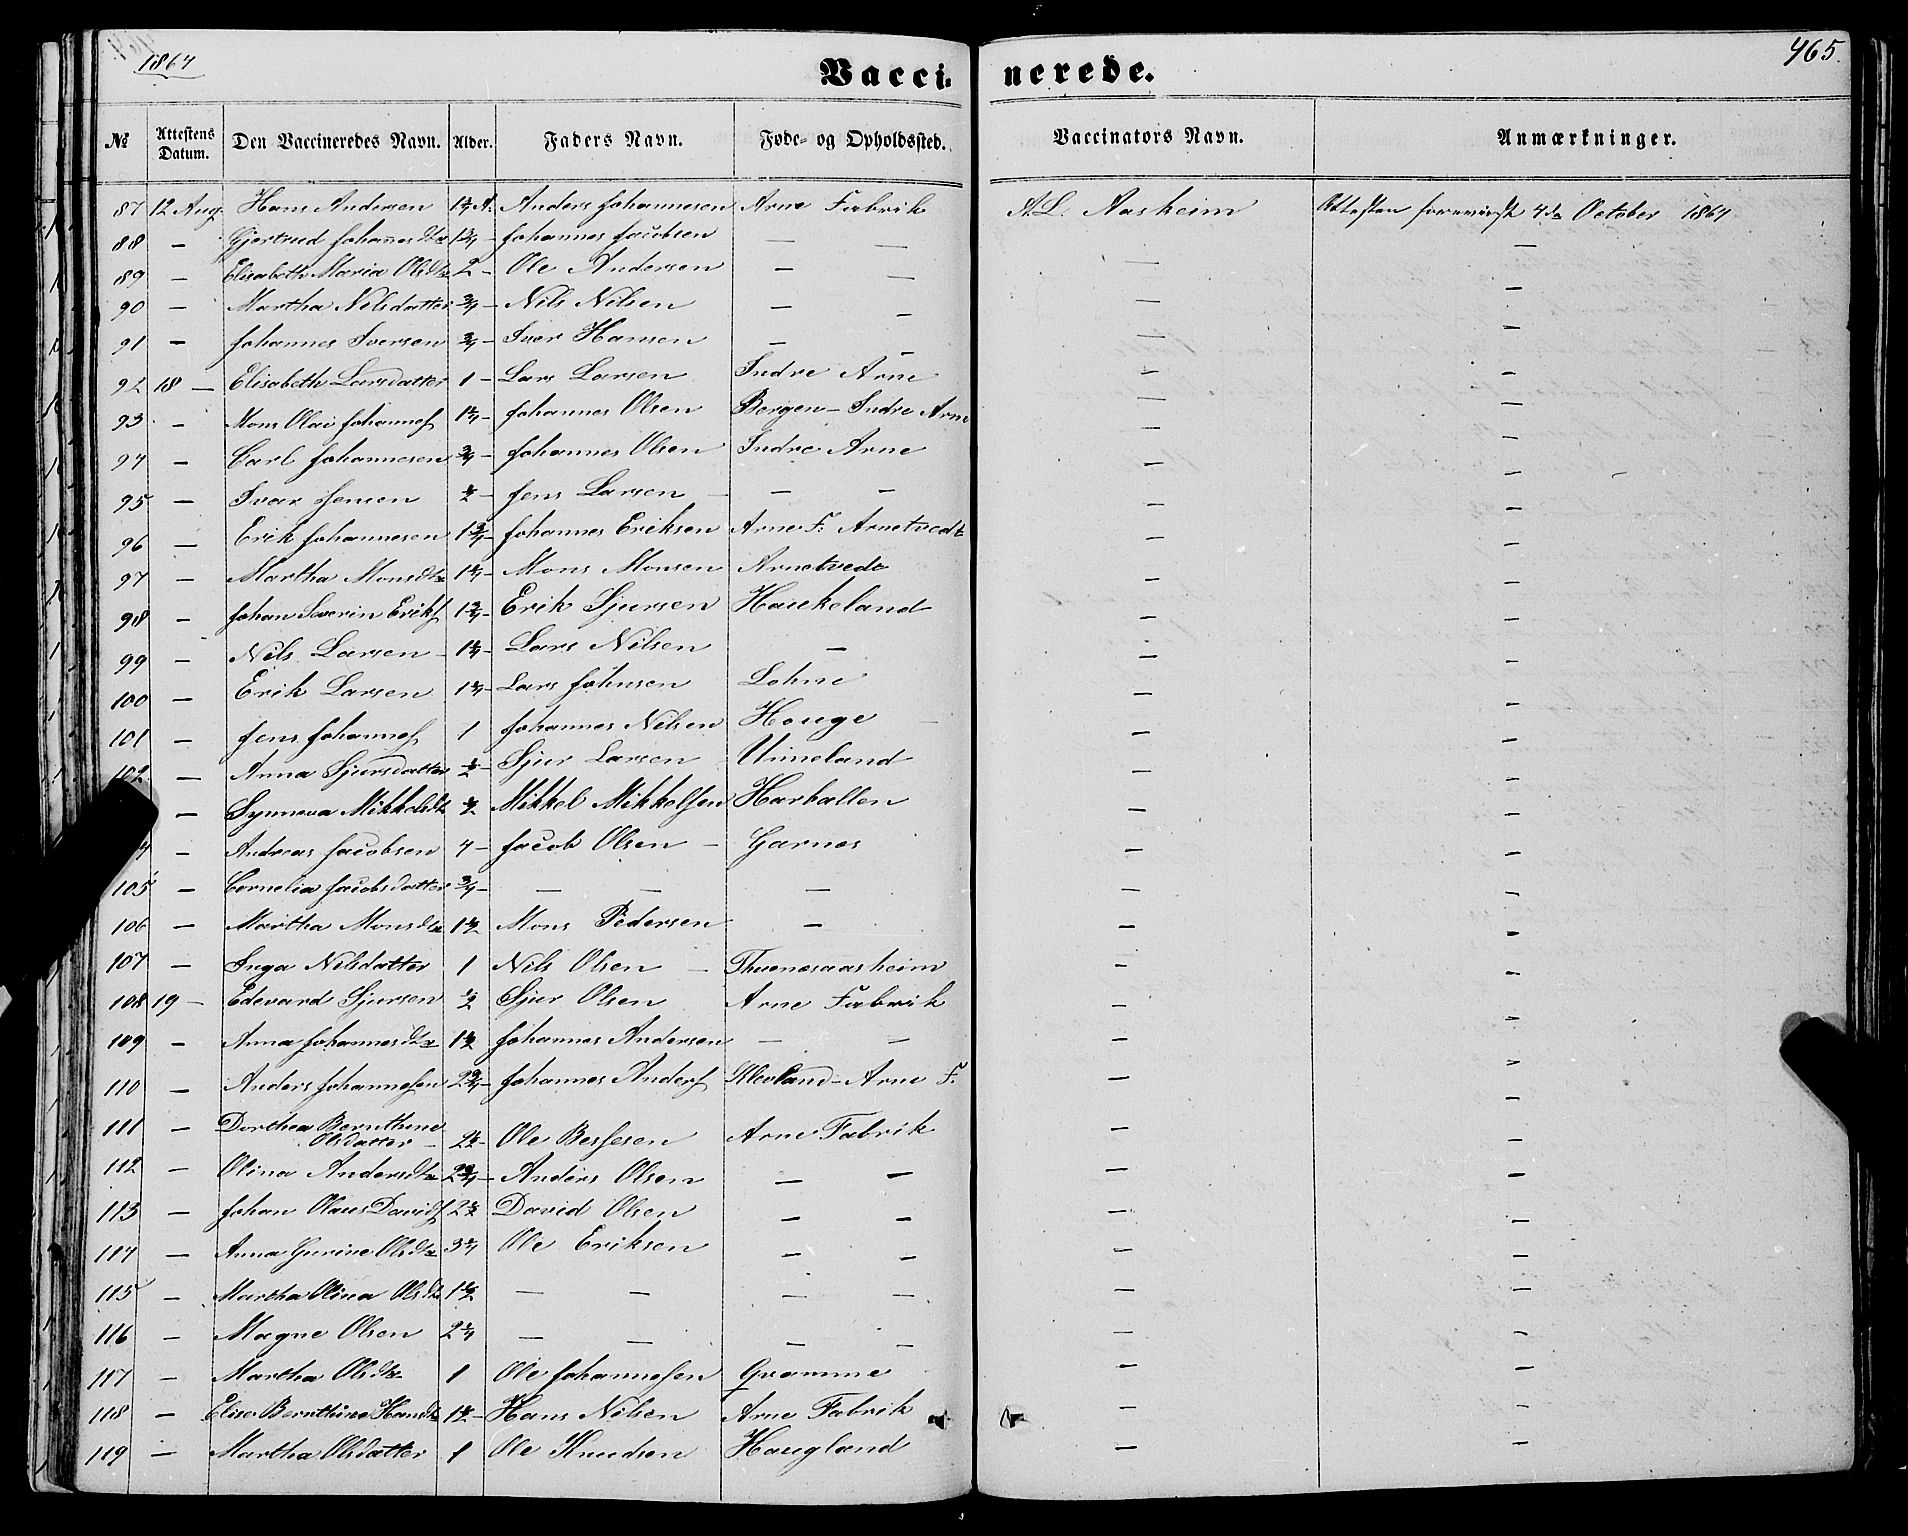 1864
465.
Vacci- nerede.
No Attestens Datum. Den Vaccineredes Navn. Alder. Faders Navn. Føde- og Opholdssted. Vaccinators Navn. Anmærkninger.
87 12 Aug. Hans Andersen 1¼ A. Anders Johannesen Arne Fabrik A. L. Aasheim Attesten foreviist 4de October 1864
88 — Gjertrud Johannesdtr — Johannes Jacobsen — — — —
89 — Elisabeth Maria Olsdtr 2 — Ole Andersen — — — —
90 — Martha Nilsdatter ¾ — Nils Nilsen — — — —
91 — Johannes Iversen ¾ — Iver Hansen — — — —
92 18 — Elisabeth Larsdatter 1 — Lars Larsen Indre Arne — —
93 — Mons Olai Johannes 1¼ — Johannes Olsen Bergen — Indre Arne — —
94 — Carl Johannesen ¾ — Johannes Olsen Indre Arne — —
95 — Ivar Jensen ½ — Jens Larsen — — — —
96 — Erik Johannesen 1¾ — Johannes Eriksen Arne F. Arnetvedt — —
97 — Martha Monsdtr 1¼ — Mons Monsen Arnetvedt — —
98 — Johan Severin Eriks 1¾ — Erik Sjursen Haukeland — —
99 — Nils Larsen 1¼ — Lars Nilsen — — —
100 — Erik Larsen 1¼ — Lars Johnsen Lohne — —
101 — Jens Johannes 1 Johannes Nilsen Houge — —
102 — Anna Sjursdatter ½ — Sjur Larsen Unneland — —
— Synneva Mikkelsdtr ½ Mikkel Mikkelsen Harhallen — —
4 — Andreas Jacobsen 4 — Jacob Olsen — Garnes — —
105 — Cornelia Jacobsdatter ¾ — — — — — —
106 — Martha Monsdtr 1½ Mons Pedersen — — —
107 — Inga Nilsdatter 1 Nils Olsen — Thuenesaasheim — —
108 19 — Edevard Sjursen ½ Sjur Olsen Arne Fabrik — —
109 — Anna Johannesdtr 1½ Johannes Andersen — — — —
110 — Anders Johannesen 2¾ — Johannes Anders Klevland — Arne F. — —
111 — Dorthea Bernthine
Olsdatter — 2½ — Ole Bessesen Arne Fabrik — —
112 — Olina Andersdtr 2¾ — Anders Olsen — — — —
113 — Johan Olaus Davids 2½ David Olsen — — — —
114 — Anna Gurine Olsdtr 3¼ Ole Eriksen — — — —
115 — Martha Olina Olsdtr 1½ — — — — — —
116 — Magne Olsen 2¼ — — — — — —
117 — Martha Olsdtr 1 Ole Johannesen Gramme — —
118 — Elise Bernthine Hansdtr 1½ — Hans Nilsen Arne Fabrik — —
119 — Martha Olsdatter 1 Ole Knudsen Haugland — —